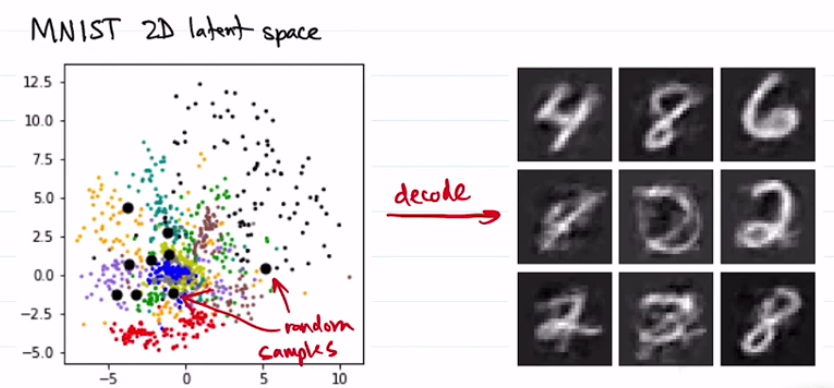 MNIST 2D latent space
12.5
10.0
7.5
5.0
2.5
0.0
−2.5
−5.0
−5 0 5 10
random
samples
decode
4 8 6
2
8